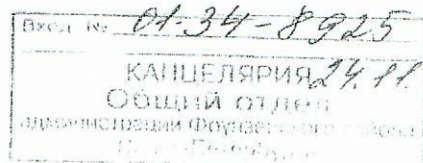 Вход. № 01-34-8925
КАНЦЕЛЯРИЯ 24.11.
Общий отдел
администрации Фрунзенского района
Санкт-Петербурга